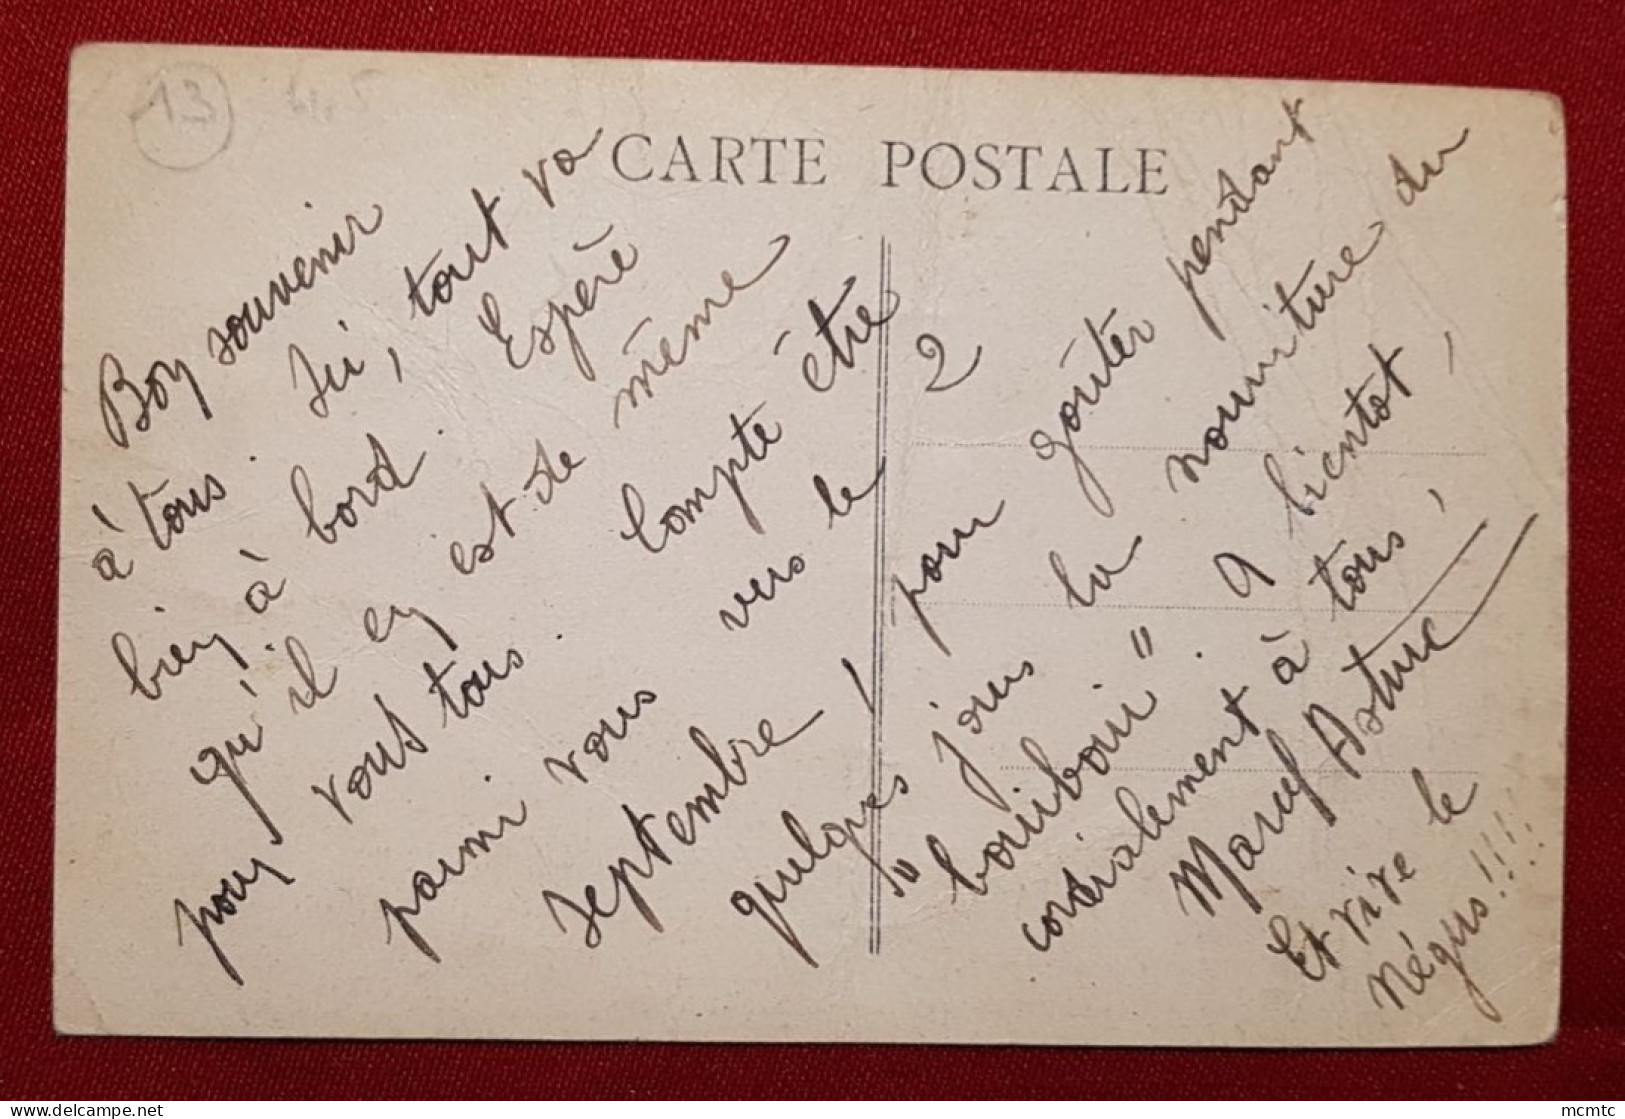 13
CARTE POSTALE
Bon souvenir
à tous. Ici, tout va
bien à bord. Espère
qu'il en est de même
pour vous tous. Compte être
parmi vous vers le 2
septembre / pour goûter pendant
quelques jours la nourriture du
"bouiboui". A bientot,
cordialement à tous,
Et vive le
Négus!!!!
mcmtc